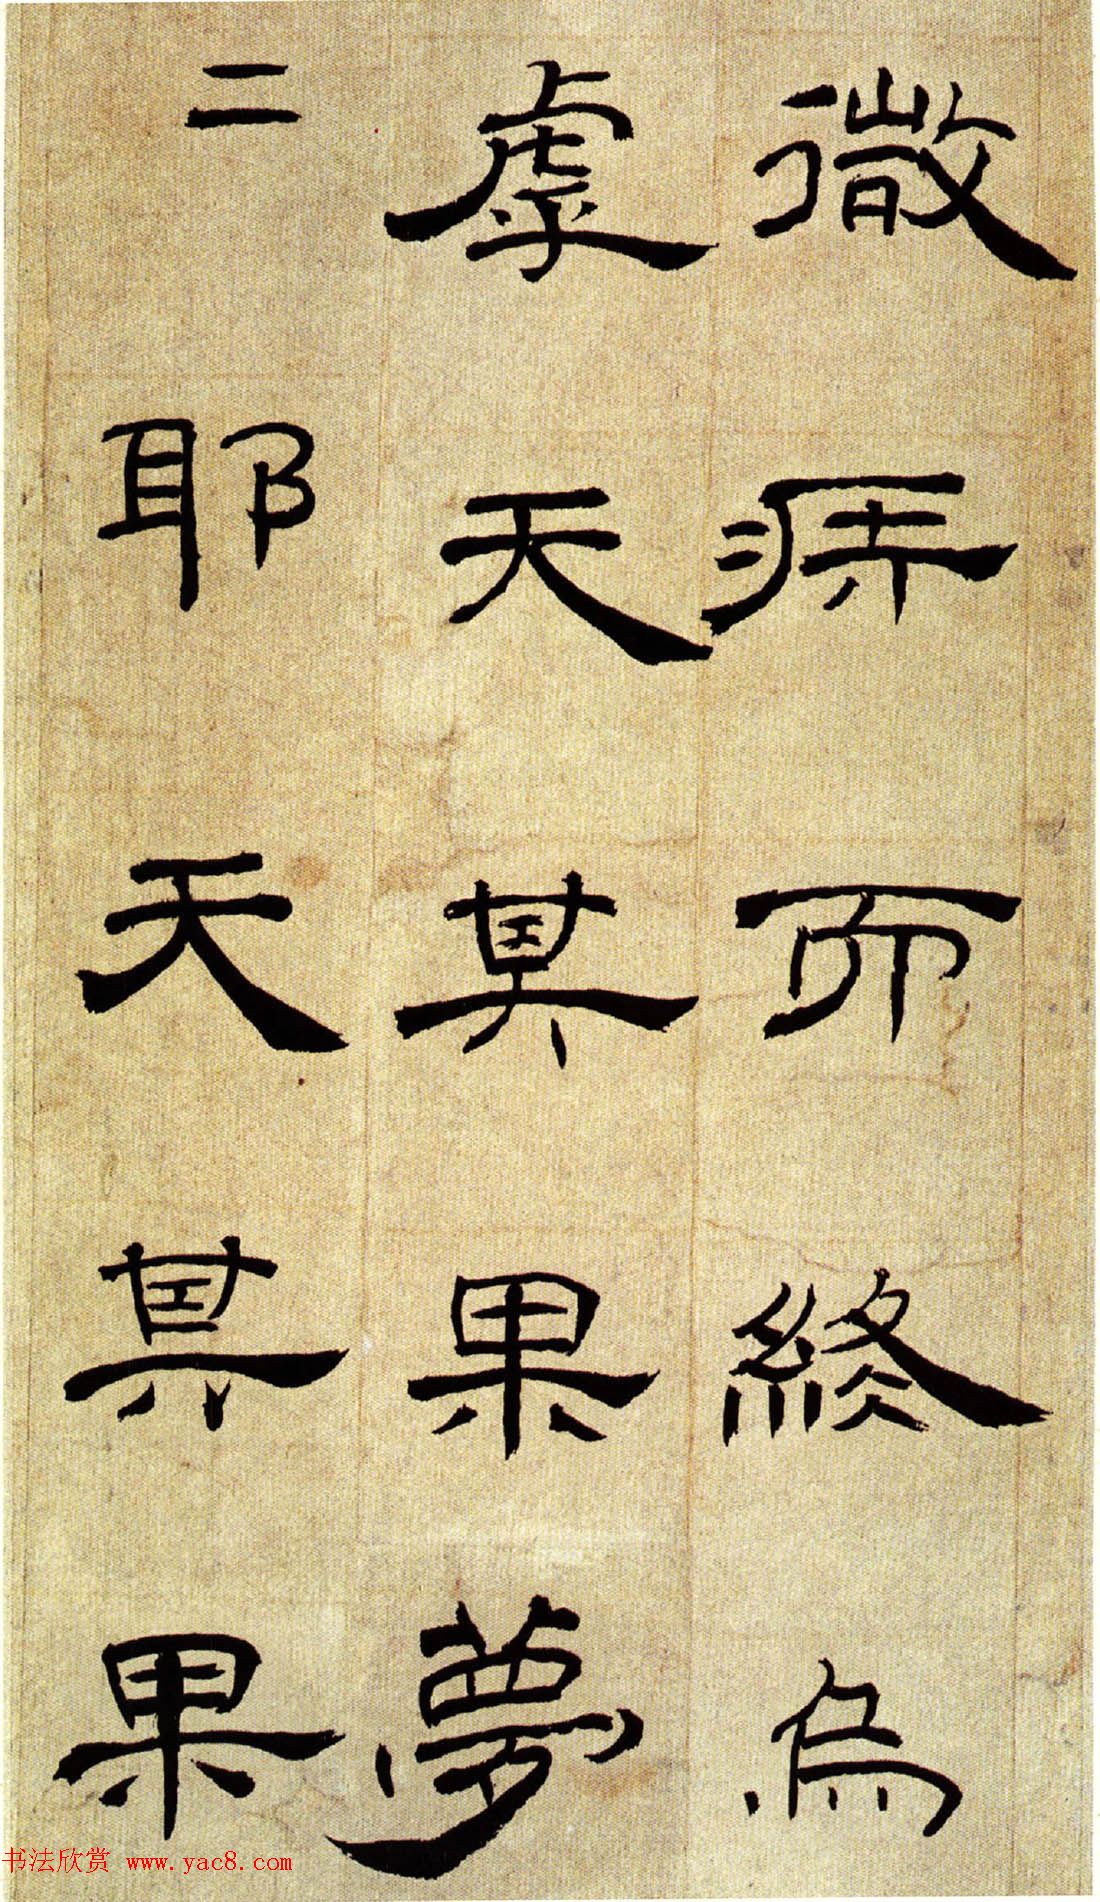 微疾而終烏
虖天其果夢
二耶天其果
书法欣赏 www.yac8.com